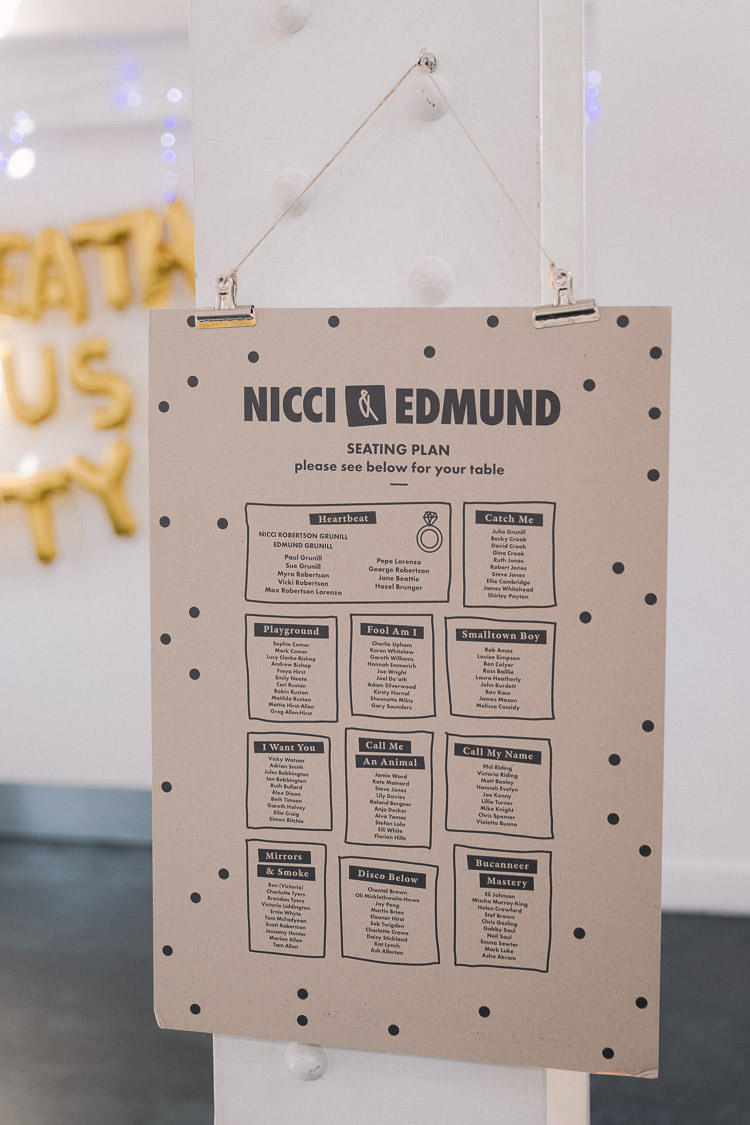 EAT
US
TY
NICCI & EDMUND
SEATING PLAN
please see below for your table
Heartbeat
NICCI ROBERTSON GRUNILL
EDMUND GRUNILL
Paul Grunill
Sue Grunill
Myra Robertson
Vicki Robertson
Max Robertson Lorenzo
Pepe Lorenzo
George Robertson
Jane Beattie
Hazel Brunger
Catch Me
Julia Grunill
Becky Crook
David Crook
Gina Crook
Ruth Jones
Robert Jones
Steve Jones
Ellie Cambridge
James Whitehead
Shirley Payton
Playground
Sophie Comer
Mark Comer
Lucy Clarke-Bishop
Andrew Bishop
Freya Hirst
Emily Neate
Ceri Ruston
Robin Ruston
Matilda Ruston
Mattie Hirst-Allen
Greg Allen-Hirst
Fool Am I
Charlie Upham
Karen Whitelaw
Gareth Williams
Hannah Emmerich
Joe Wright
Joel De'ath
Adam Silverwood
Kirsty Hornal
Sheonette Milns
Gary Saunders
Smalltown Boy
Rob Amos
Louise Simpson
Ben Calyer
Ross Baillie
Laura Heatherly
John Burdett
Rav Kaur
James Mason
Melissa Cassidy
I Want You
Vicky Watson
Adrian Smith
Jules Bebbington
Ian Bebbington
Ruth Bullard
Alex Dixon
Beth Timson
Gareth Halvey
Ellie Craig
Simon Ritchie
Call Me
An Animal
Jamie Ward
Kate Mainard
Steve Jones
Lily Davies
Roland Bergner
Anja Decker
Aivo Tamoc
Stefan Lohr
Elli White
Florian Hille
Call My Name
Phil Riding
Victoria Riding
Matt Baxley
Hannah Evelyn
Joe Kenny
Lillie Turner
Mike Knight
Chris Spencer
Violetta Buono
Mirrors
& Smoke
Ben (Victoria)
Charlotte Tyers
Brendan Tyers
Victoria Liddington
Ernie Whyte
Tom McFadyean
Scott Robertson
Jessamy Hunter
Marion Allen
Tam Allen
Disco Below
Chantal Brown
Oli Micklethwaite-Howe
Joy Peng
Martin Brien
Eleanor Hirst
Seb Twigden
Charlotte Crowe
Daisy Stickland
Kat Lynch
Ash Allerton
Bucanneer
Mastery
Eli Johnson
Mischa Murray-King
Helen Crawford
Stef Brown
Chris Gosling
Gabby Saul
Neil Saul
Emma Sewter
Mark Luke
Asha Akram